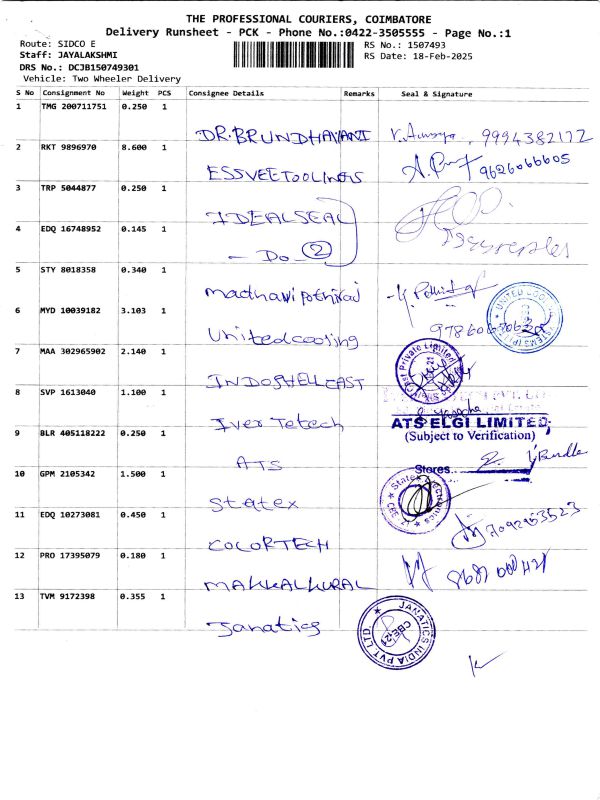 THE PROFESSIONAL COURIERS, COIMBATORE
Delivery Runsheet - PCK - Phone No.:0422-3505555 - Page No.:1
Route: SIDCO E
RS No.: 1507493
Staff: JAYALAKSHMI
RS Date: 18-Feb-2025
DRS No.: DCJB150749301
Vehicle: Two Wheeler Delivery
S No Consignment No Weight PCS Consignee Details Remarks Seal & Signature
1 TMG 200711751 0.250 1
DR.BRUNDHAVANI 9994382172
2 RKT 9896970 8.600 1
ESSVEETOOLINGS 9626066605
3 TRP 5044877 0.250 1
IDEALSEAL
4 EDQ 16748952 0.145 1
- Do - 2
5 STY 8018358 0.340 1
6 MYD 10039182 3.103 1
Unitedcooling
7 MAA 302965902 2.140 1
INDOSHELLCAST
8 SVP 1613040 1.100 1
ATS ELGI LIMITED
(Subject to Verification)
9 BLR 405118222 0.250 1
ATS
Stores
10 GPM 2105342 1.500 1
Statex
11 EDQ 10273081 0.450 1
COLORTECH
12 PRO 17395079 0.180 1
MAKKALKURAL
13 TVM 9172398 0.355 1
Janatics
JANATICS INDIA PVT. LTD.
CBE-21